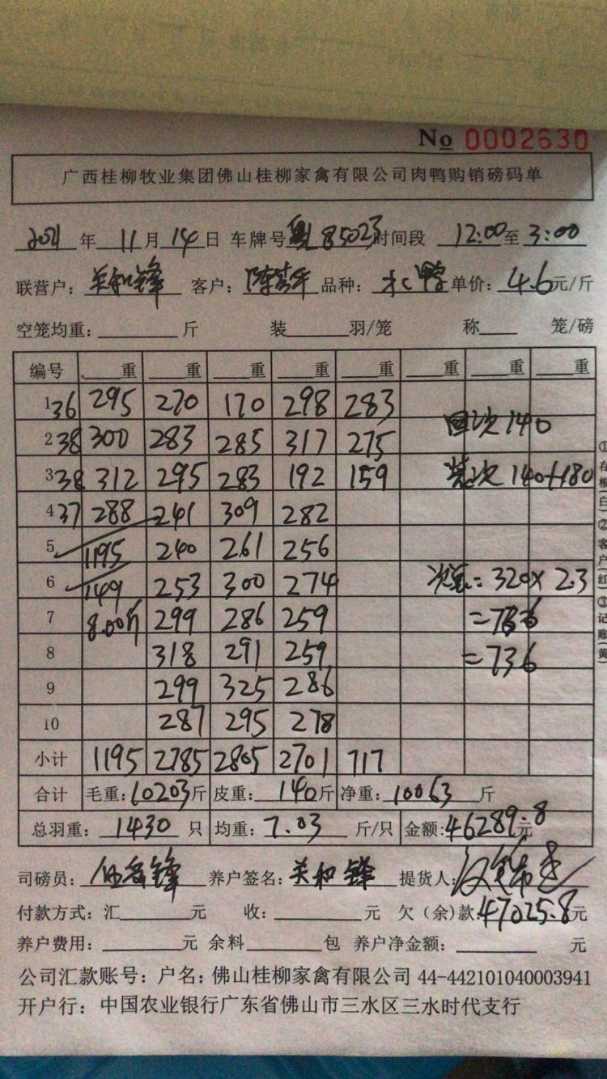 No 0002630
广西桂柳牧业集团佛山桂柳家禽有限公司肉鸭购销磅码单
2021 年 11 月 14 日 车牌号 粤 85023 时间段 12:00 至 3:00
联营户: 关和锋 客户: 品种: 鸭 单价: 4.6 元/斤
空笼均重: 斤 装 羽/笼 称 笼/磅
编号 重 重 重 重 重 重 重 重
1 36 295 270 170 298 283
回次 140
2 38 300 283 285 317 275
3 38 312 295 283 192 159 装次 140+180
4 37 288 241 309 282
5 1195 240 261 256
6 149 253 300 274 = 320×2.3
7 8.00斤 299 286 259 =736
8 318 291 259 =736
9 299 325 286
10 287 295 278
小计 1195 2785 2805 2701 717
合计 毛重: 10203 斤 皮重: 140 斤 净重: 10063 斤
总羽重: 1430 只 均重: 7.03 斤/只 金额: 46289.8 元
司磅员: 养户签名: 关和锋 提货人:
付款方式: 汇 元 收: 元 欠(余)款: 47025.8 元
养户费用: 元 余料 包 养户净金额: 元
公司汇款账号: 户名: 佛山桂柳家禽有限公司 44-442101040003941
开户行: 中国农业银行广东省佛山市三水区三水时代支行